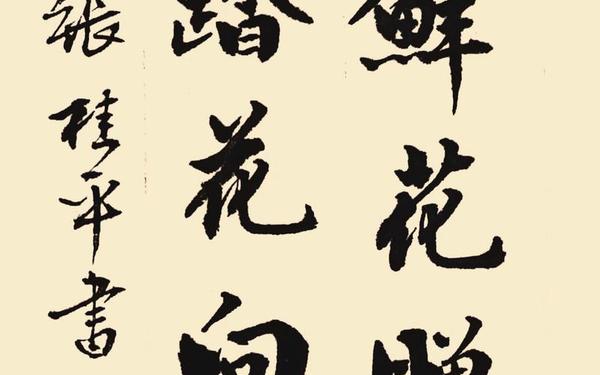 鮮花贈
踏花向
張桂平書